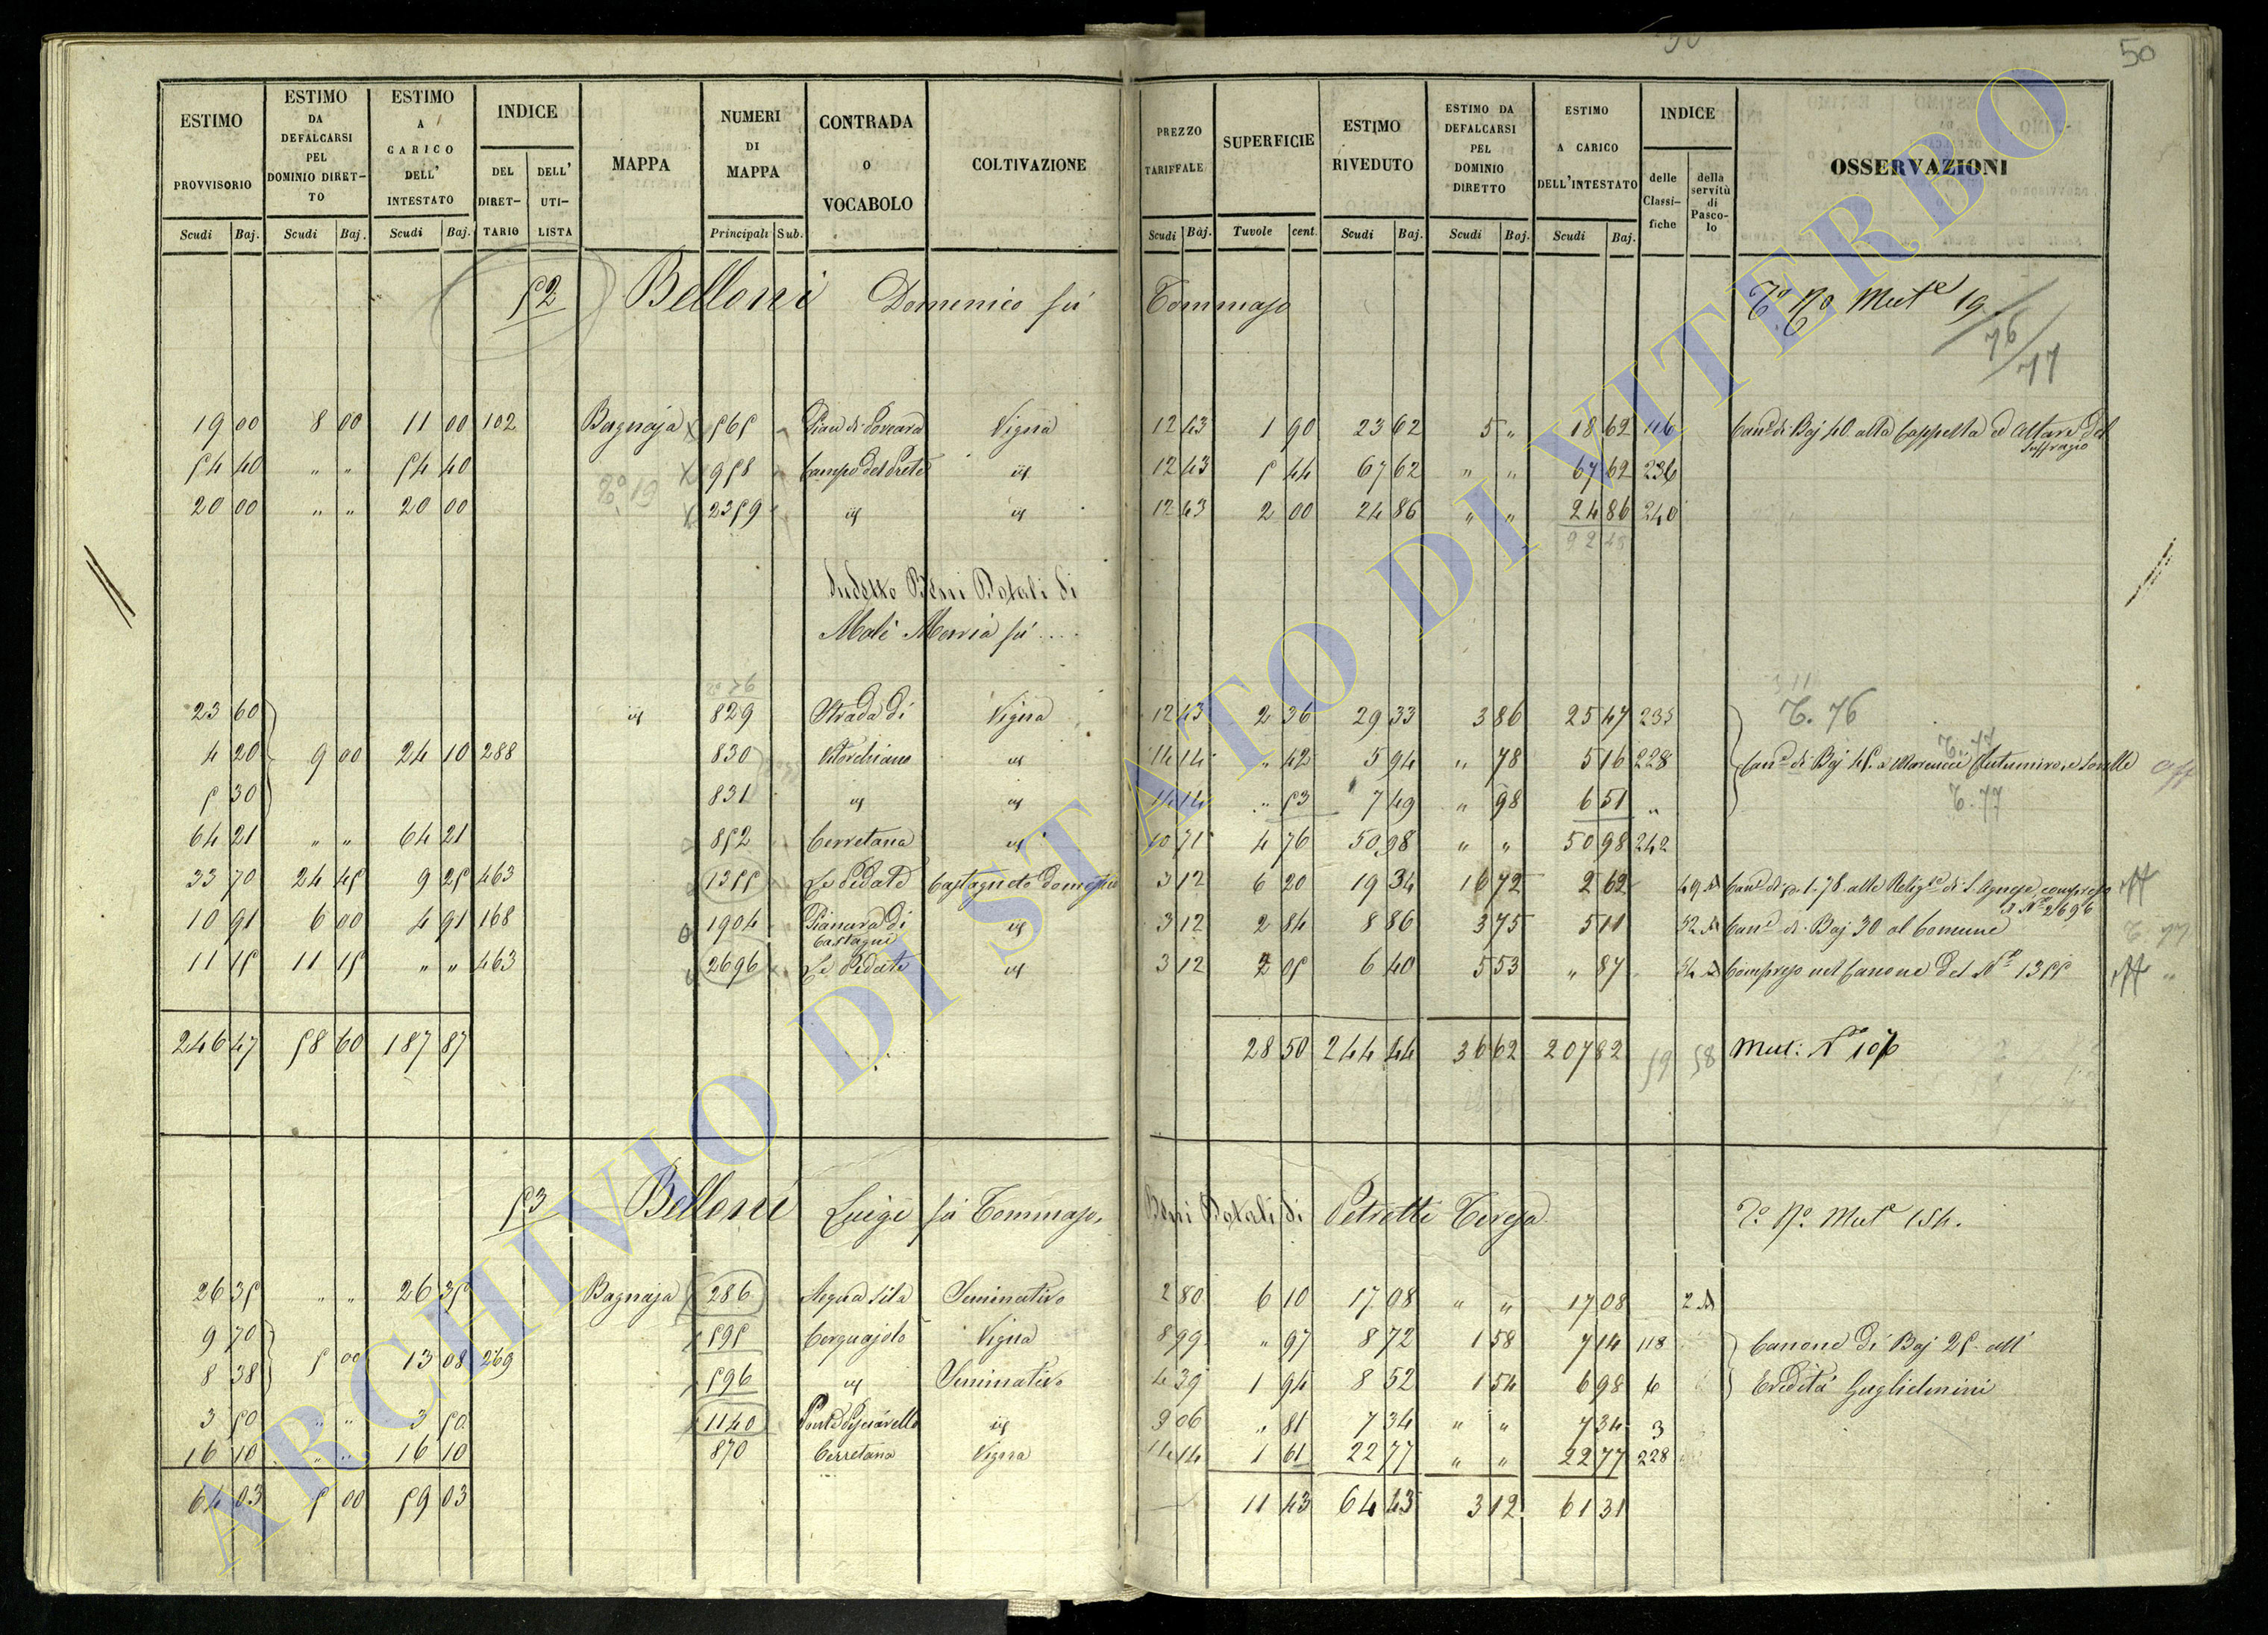 50
ESTIMO PROVVISORIO Scudi Baj.
ESTIMO DA DEFALCARSI PEL DOMINIO DIRETTO Scudi Baj.
ESTIMO A CARICO DELL' INTESTATO Scudi Baj.
INDICE DEL DIRETTARIO DELL' UTILISTA
MAPPA
NUMERI DI MAPPA Principali Sub.
CONTRADA O VOCABOLO
COLTIVAZIONE
PREZZO TARIFFALE Scudi Baj.
SUPERFICIE Tavole cent.
ESTIMO RIVEDUTO Scudi Baj.
ESTIMO DA DEFALCARSI PEL DOMINIO DIRETTO Scudi Baj.
ESTIMO A CARICO DELL'INTESTATO Scudi Baj.
INDICE delle Classifiche della servitù di Pascolo
OSSERVAZIONI
52 Belloni Domenico fu Tommaso Mut.e 19
76
77
19 00 8 00 11 00 102 Bagnaja 565 Vigna 12 43 1 90 23 62 5 " 18 62 116 Can.e di Baj 40 alla Cappella ed Altare del Suffragio
54 40 " " 54 40 958 Campo del Prete id 12 43 5 44 67 62 " " 67 62 236
20 00 " " 20 00 2359 id id 12 43 2 00 24 86 " " 24 86 240
92 48
Sudetto Beni Dotali di
Malè Maria fu ....
T. 76
23 60 id 829 Strada di Vigna 12 43 2 36 29 33 3 86 25 47 235
4 20 9 00 24 10 288 830 Vitorchiano id 14 14 " 42 5 94 " 78 5 16 228 Can.e di Baj 45 a Sorelle
5 30 831 id id 14 14 " 53 7 49 " 98 6 51 " T. 77
64 21 " " 64 21 852 Cerretana id 10 71 4 76 50 98 " " 50 98 242
33 70 24 45 9 25 463 1355 Le Pedate Castagneto domestico 3 12 6 20 19 34 16 72 2 62 49 Can.e di 1.78 alle Relig.se di S. Agnese, compreso il N.o 2696
10 91 6 00 4 91 168 1904 Pianara di Castagni id 3 12 2 84 8 86 3 75 5 11 52 Can.e di Baj 30 al Comune
11 15 11 15 " " 463 2696 Le Pedate id 3 12 2 05 6 40 5 53 " 87 54 Compreso nel Canone del N.o 1355
246 47 58 60 187 87 28 50 244 44 36 62 207 82 59 58 Mut: N.o 107
53 Belloni Luigi fu Tommaso, Beni Dotali di Petretti Teresa Mut.e 154.
26 35 " " 26 35 Bagnaja 286 Seminativo 2 80 6 10 17 08 " " 17 08 2
9 70 595 Corguajolo Vigna 8 99 " 97 8 72 1 58 7 14 118 Canone di Baj 25 all'
8 38 5 00 13 08 269 596 id Seminativo 4 39 1 94 8 52 1 54 6 98 6 Eredità Guglielmini
3 50 " " 3 50 1140 id 9 06 " 81 7 34 " " 7 34 3
16 10 " " 16 10 870 Cerretana Vigna 14 14 1 61 22 77 " " 22 77 228
64 03 5 00 59 03 11 43 64 43 3 12 61 31
ARCHIVIO DI STATO DI VITERBO